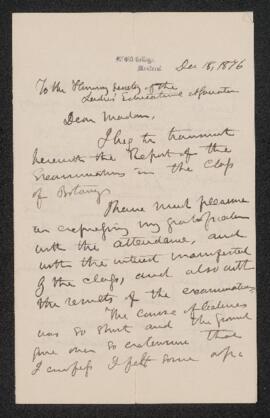 McGill College,
Montreal
Dec 18, 1876
To the Honorary Secretary of the
Ladies' Educational Association
Dear Madam,
I beg to transmit
herewith the Report of the
Examinations in the Class
of Botany
I have much pleasure
in expressing my gratification
with the attendance, and
with the interest manifested
of the class, and also with
the results of the examination.
The course of lectures
was so short and the ground
gone over so extensive that
I confess I felt some